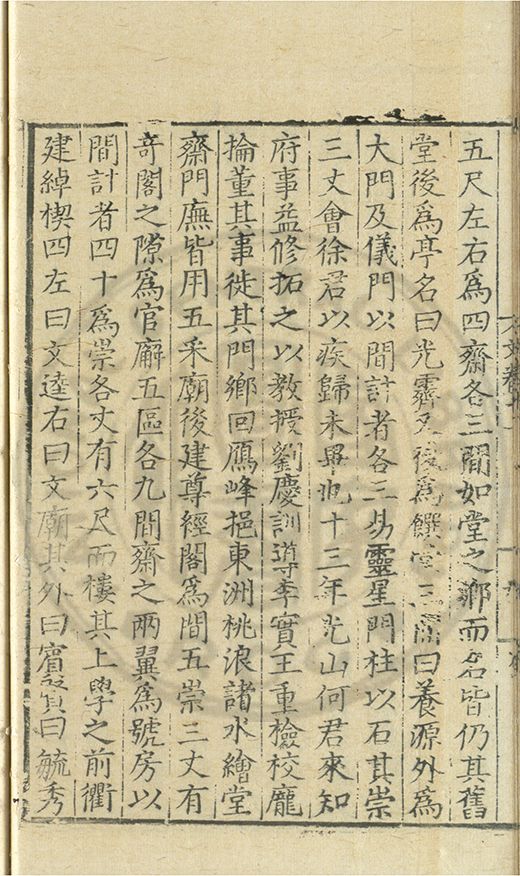 五尺左右爲四齋各三間如堂之鄉而名皆仍其舊
堂後爲亭名曰光霽又後爲饌堂三間曰養源外爲
大門及儀門以間計者各三易靈星門柱以石其崇
三丈會徐君以疾歸未畢也十三年光山何君來知
府事益修拓之以教授劉慶訓導李實王重檢校龐
掄董其事徙其門鄉回鴈峰挹東洲桃浪諸水繪堂
齋門廡皆用五采廟後建尊經閣爲間五崇三丈有
奇閣之隙爲官廨五區各九間齋之兩翼爲號房以
間計者四十爲崇各丈有六尺而樓其上學之前衢
建綽楔四左曰文逵右曰文廟其外曰賓賢曰毓秀